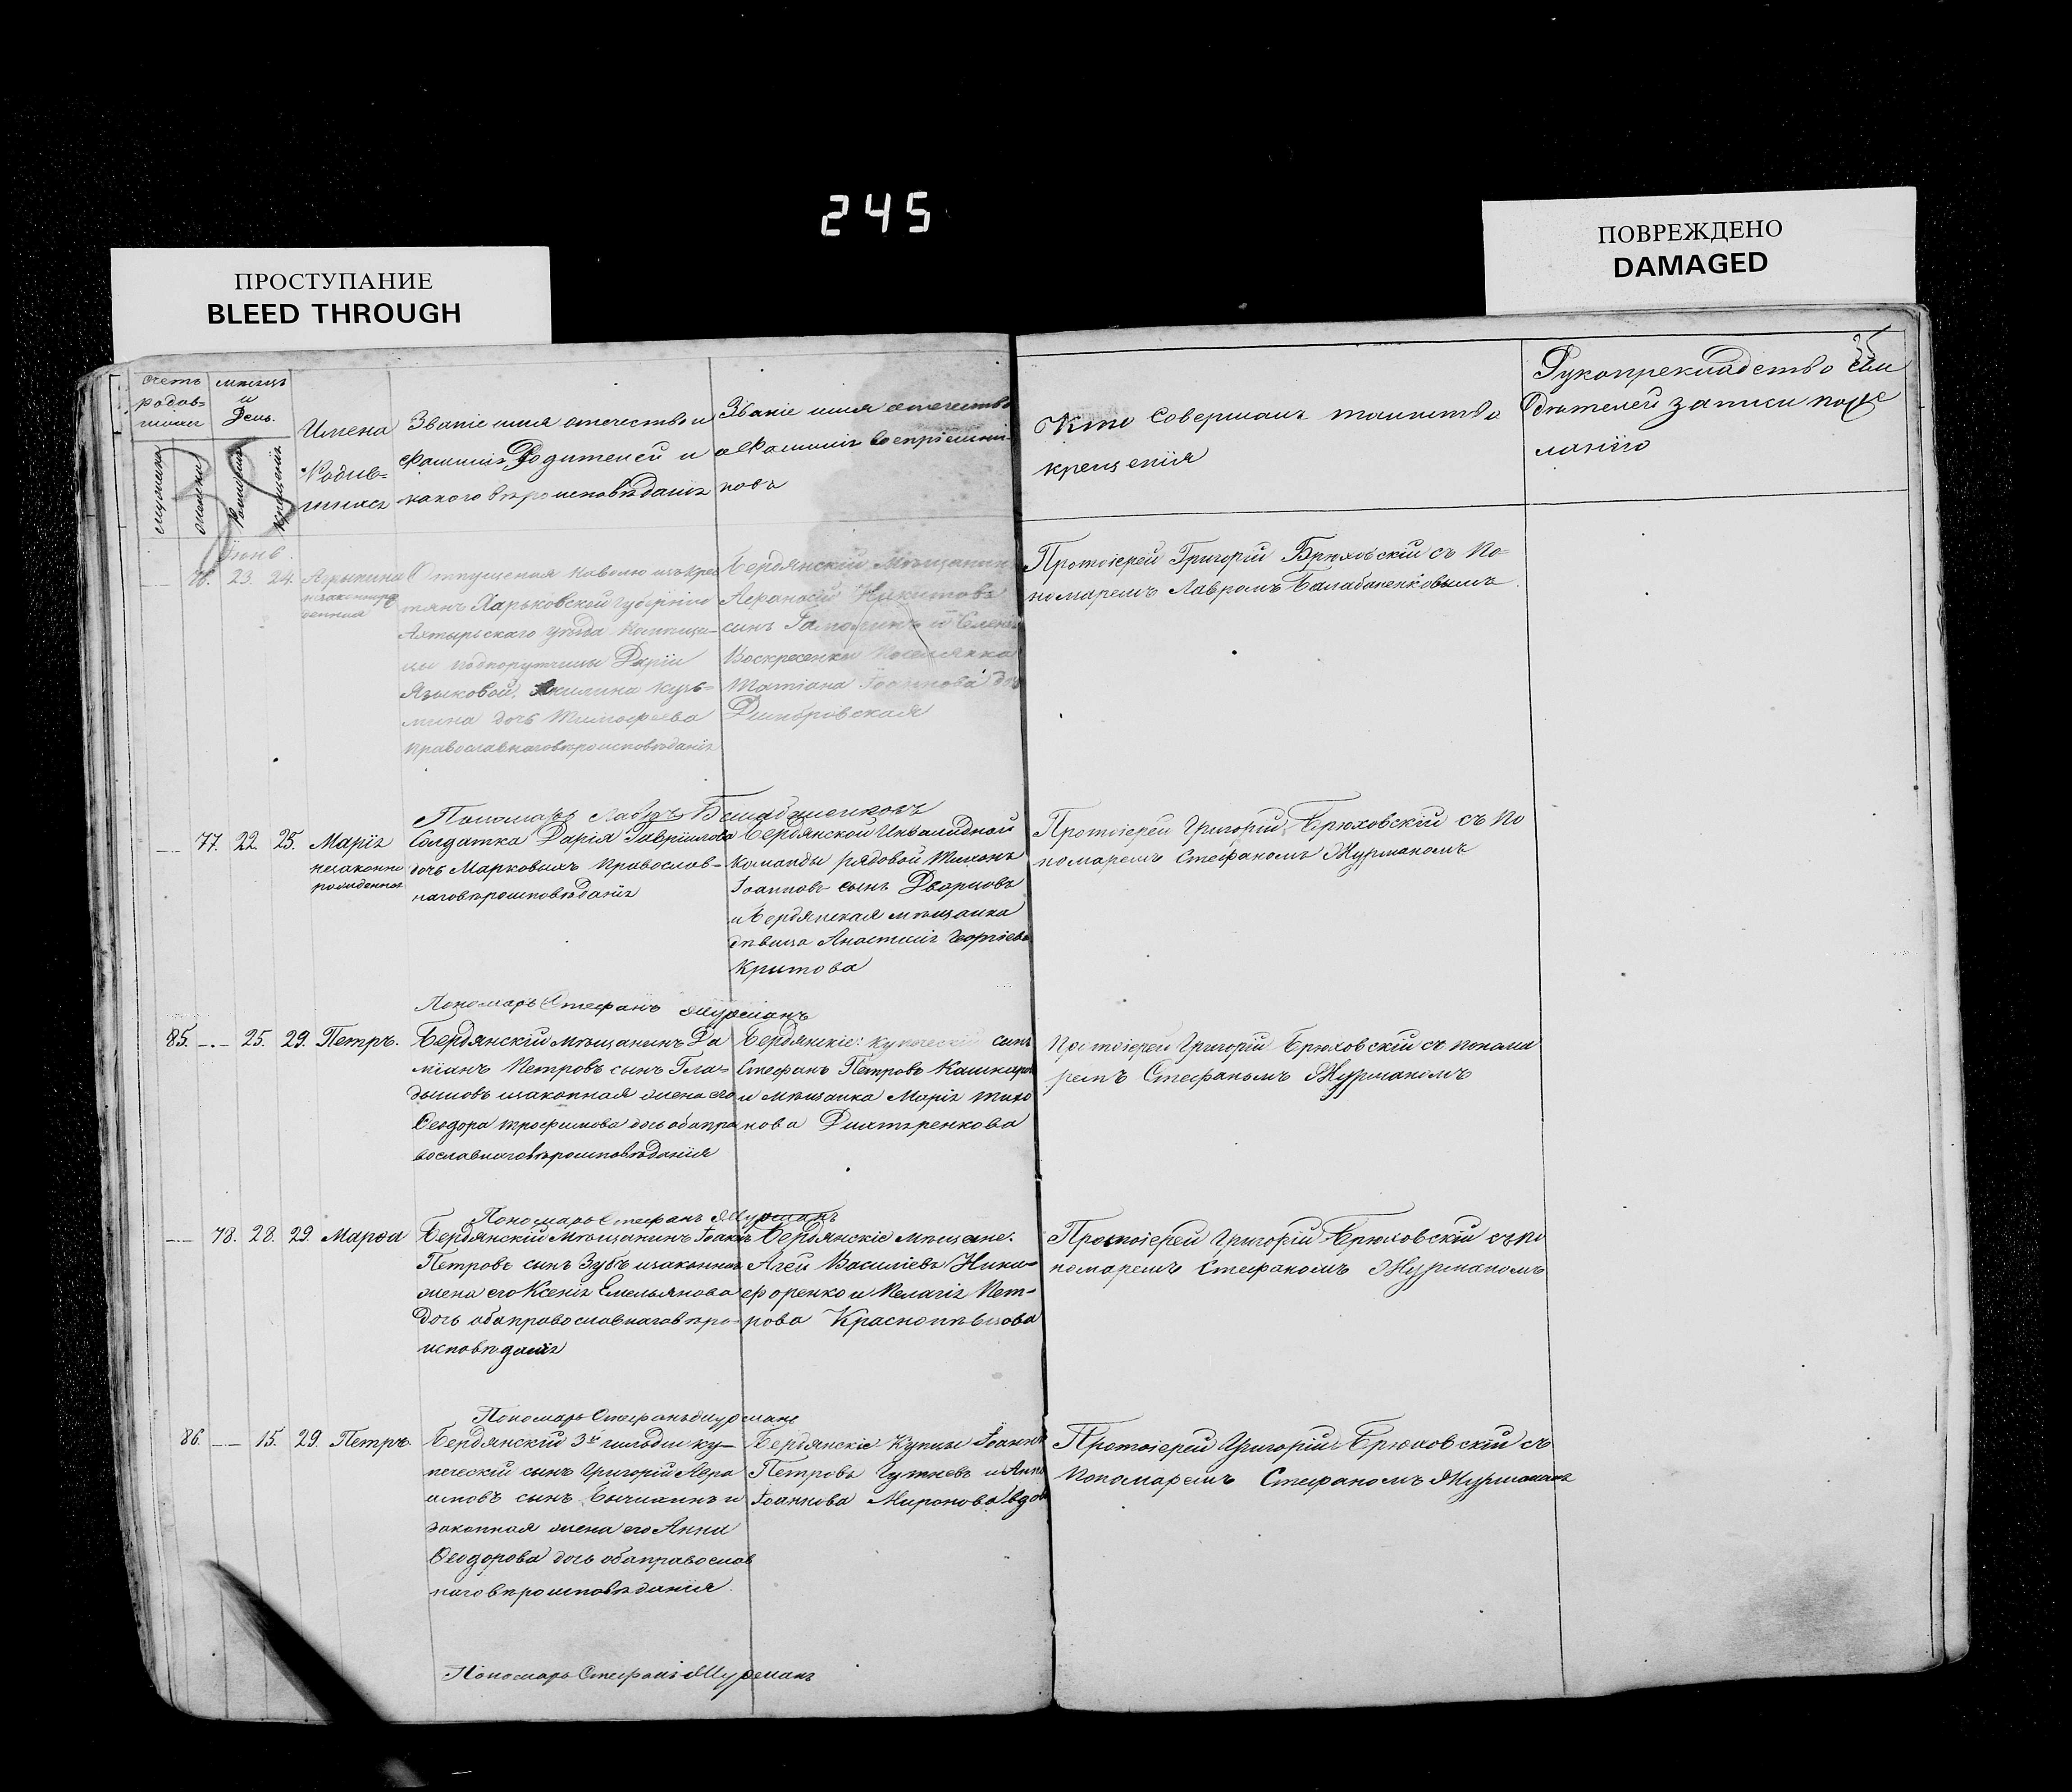 245
ПРОСТУПАНИЕ
BLEED THROUGH
ПОВРЕЖДЕНО
DAMAGED
35
Счетъ родив-шихся
мѣсяцъ и День.
мужеска
женска
Рожденія
крещенія
Имена Родив-шихся
Званіе имя отечество и
Фамилія Родителей и
какого вѣроисповѣданія
Званіе имя отечество
и Фамилія Воспріемни-
ковъ
Кто Совершалъ таинство
крещенія
Рукоприкладство сви
дѣтелей записи по же
ланію
Іюнь
76. 23. 24.
незаконорожденная
Отпущеная наволю изъ крес
тянъ Харьковской губерніи
Ахтырскаго уѣзда
подпорутчицы Даріи
Языковой, Акилина Кузь-
мина дочь Тимофеева
православнаго вѣроисповѣданія
Бердянскій Мѣщанинъ
Афанасій Никитовъ
сынъ
Воскресенки Поселянка
Татіана Іоаннова
Димбровская
Протоіерей Григорій Брюховскій съ По-
номаремъ Лавромъ Балабаненковымъ
Пономарь Лавръ Балабаненковъ
77. 22. 25. Марія
незаконно рожденная
Солдатка Дарія Гавріилова
дочь Марковыхъ Православ-
наго вѣроисповѣданія
Бердянской Инвалидной
Команды рядовой Тихонъ
Іоанновъ сынъ Дворцовъ
и Бердянская мѣщанка
дѣвица Анастасія Георгіева
Критова
Протоіерей Григорій Брюховскій съ По
номаремъ Стефаномъ Журманомъ
Пономарь Стефанъ Журманъ
85. 25. 29. Петръ.
Бердянскій мѣщанинъ Да
міанъ Петровъ сынъ Гла-
дышовъ изаконная жена его
Феодора трофимова дочь оба пра
вославнаго вѣроисповѣданія
Бердянскіе: купеческій сынъ
Стефанъ Петровъ
и мѣщанка Марія тихо
нова Дихтяренкова
Протоіерей Григорій Брюховскій съ понома
ремъ Стефаномъ Журманомъ
Пономарь Стефанъ Журманъ
78. 28. 29. Марѳа
Бердянскій Мѣщанинъ
Петровъ сынъ Зубъ изаконная
жена его Ксенія Емельянова
дочь оба православнаго вѣро-
исповѣданія
Бердянскіе мѣщане:
Агей Василіевъ Ники-
форенко и Пелагія Пет-
рова Краснопѣвцова
Протоіерей Григорій Брюховскій съ по
номаремъ Стефаномъ Журманомъ
Пономарь Стефанъ Журманъ
86. 15. 29. Петръ.
Бердянскій 3й гильдіи ку-
печескій сынъ Григорій Авра
амовъ сынъ и
законная жена его Анна
Феодорова дочь оба православ
наго вѣроисповѣданія.
Бердянскіе Купцы Іоаннъ
Петровъ и Анна
Іоаннова Миронова вдова
Протоіерей Григорій Брюховскій съ
Пономаремъ Стефаномъ Журманомъ
Пономарь Стефанъ Журманъ